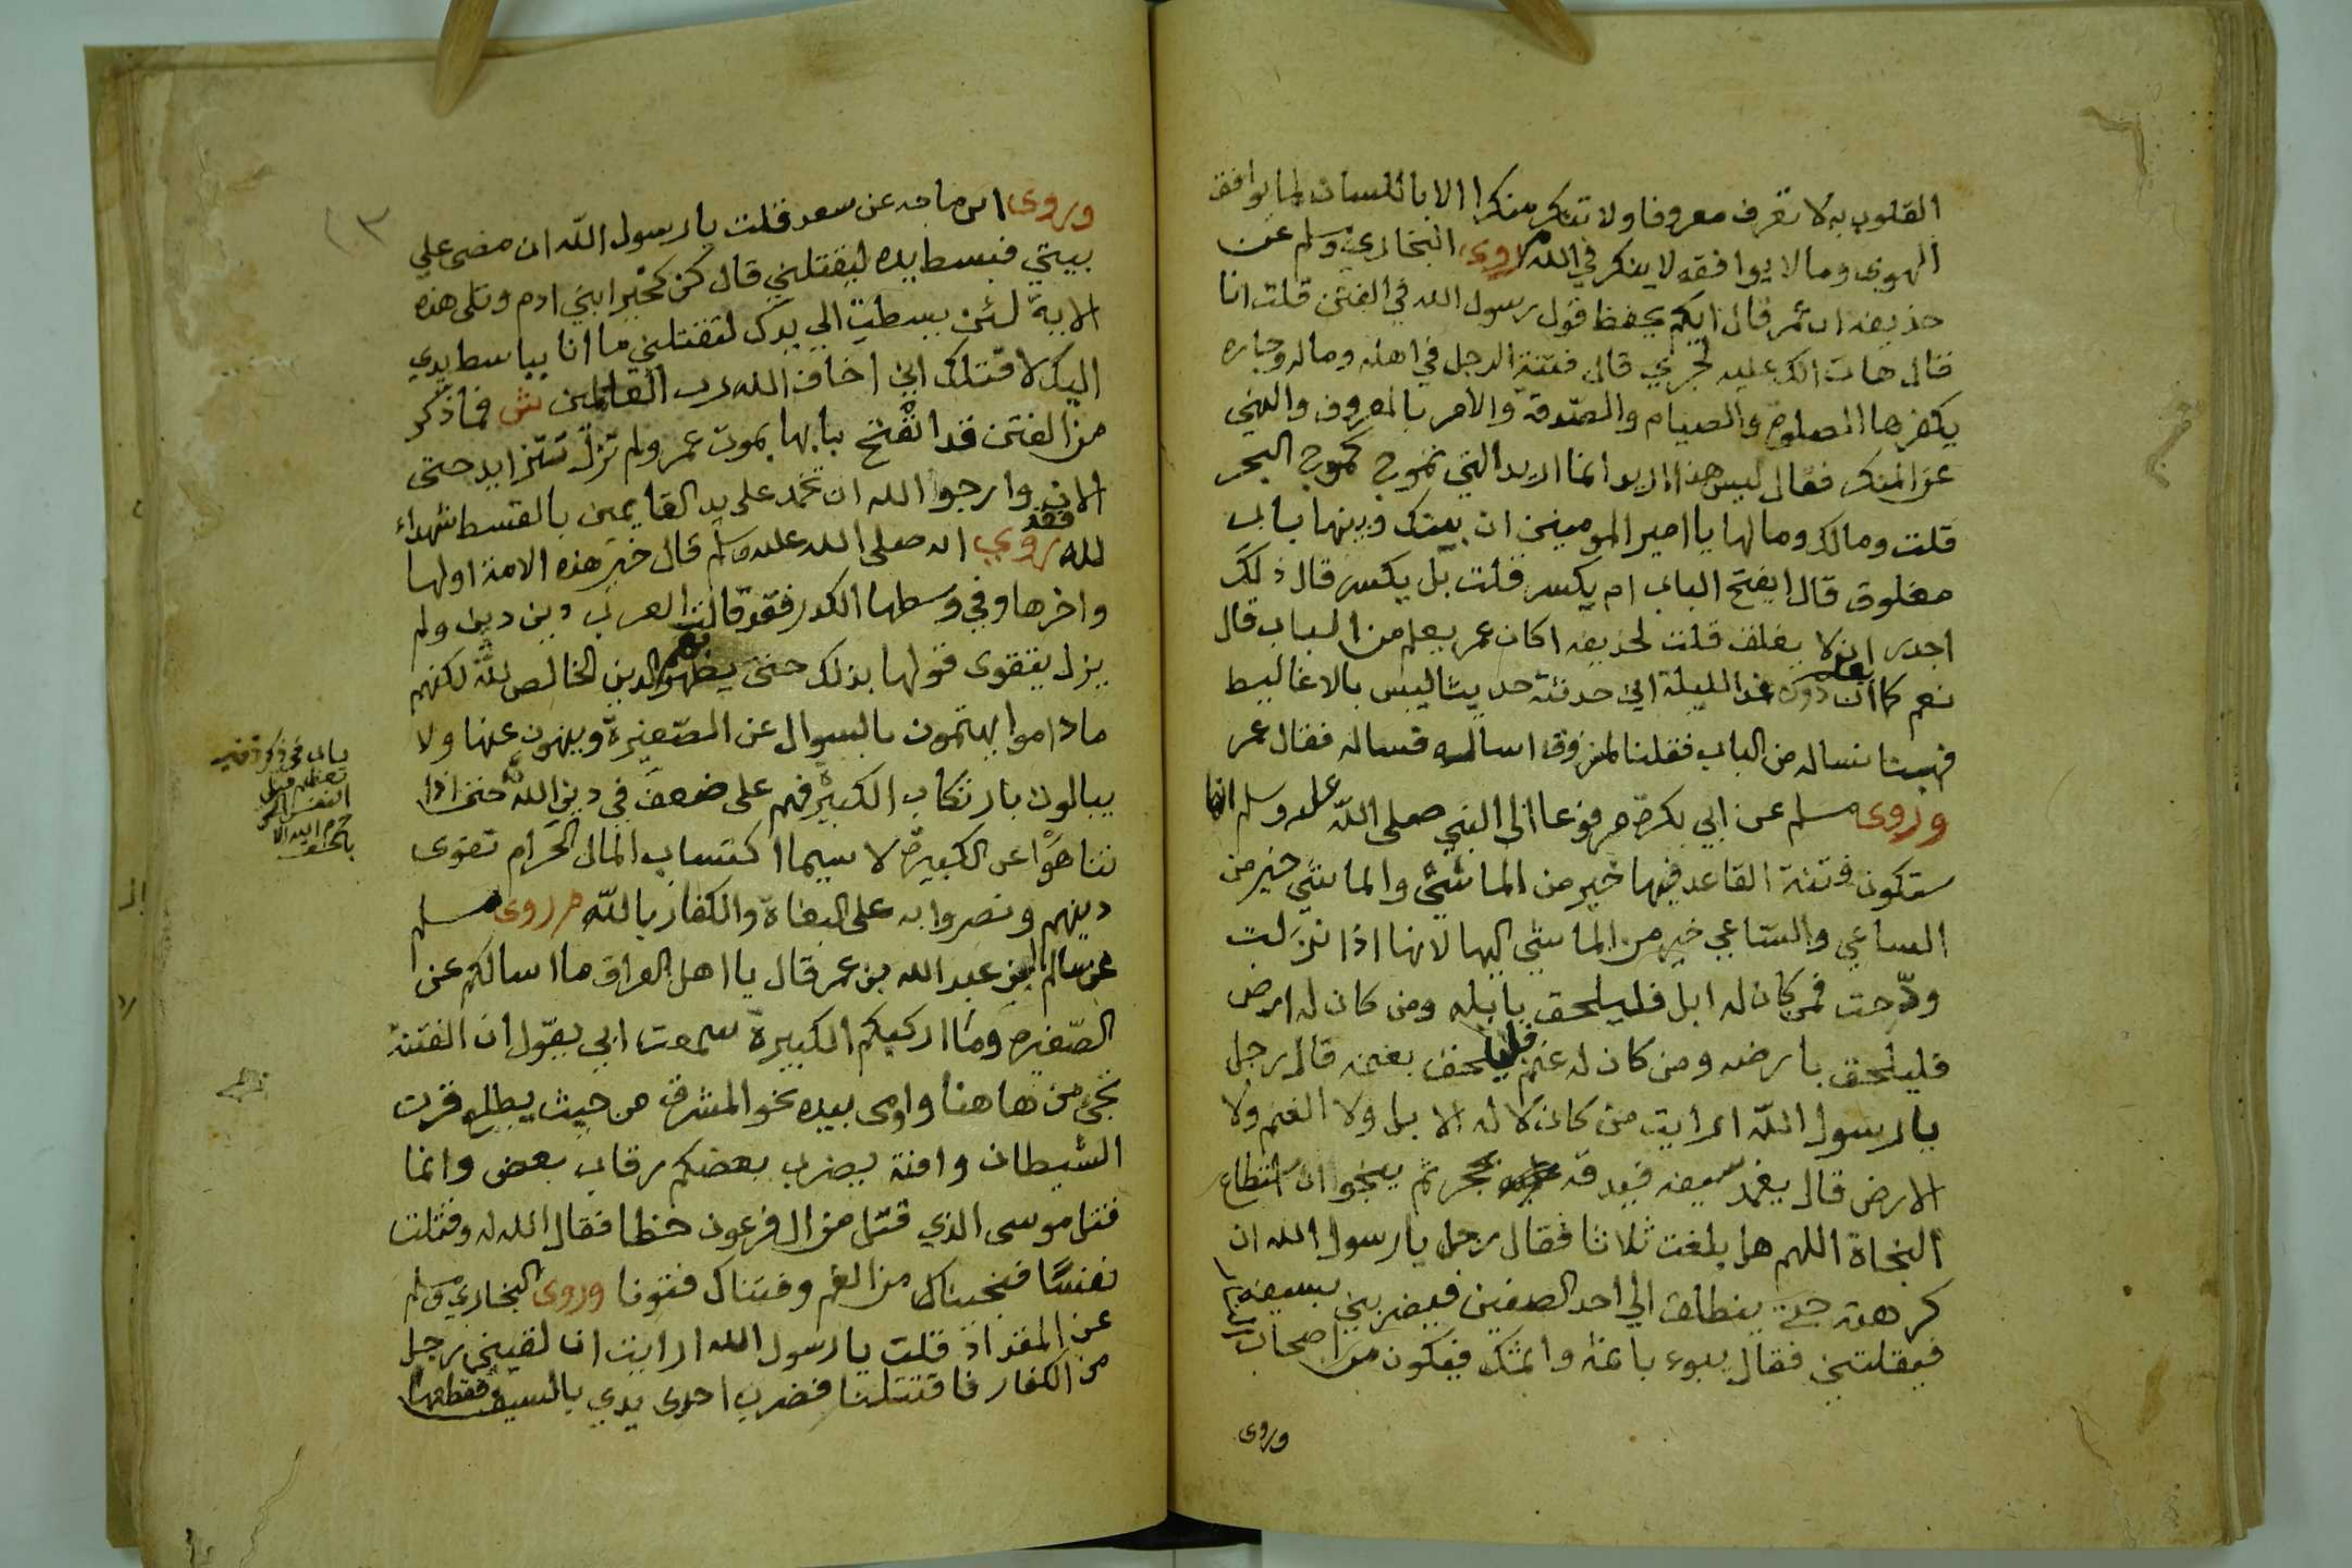 القلوب به لا تعرف معروفا ولا تنكر منكرا الا باللسان لما يوافق
الهوى وما لا يوافقه لا ينكر في الله روى البخاري ومسلم عن
حذيفه ان عمر قال ايكم يحفظ قول رسول الله في الفتن قلت انا
قال هات انك عليه لجري قال فتنة الرجل في اهله وماله وجاره
يكفرها الصلوة والصيام والصدقة والامر بالمعروف والنهي
عن المنكر فقال ليس هذا اريد انما اريد التي تموج كموج البحر
قلت ومالك ومالها يا امير المومنين ان بينك وبينها باب
مغلوق قال ايفتح الباب ام يكسر قلت بل يكسر قال ذلك
اجدر ان لا يغلق قلت لحذيفه اكان عمر يعلم من الباب قال
نعم كما يعلم ان دون غد الليلة اني حدثته حديثا ليس بالاغاليط
فهبنا نساله من الباب فقلنا لمسروق اساله فساله فقال عمر
وروى مسلم عن ابي بكرة مرفوعا الى النبي صلى الله عليه وسلم انها
ستكون فتنة القاعد فيها خير من الماشي والماشي خير من
الساعي والساعي خير من الماشي اليها لانها اذا نزلت
فمن كان له ابل فليلحق بابله ومن كان له ارض
فليلحق بارضه ومن كان له غنم فليلحق بغنمه قال رجل
يا رسول الله ارايت من كان لا له الابل ولا الغنم ولا
الارض قال يغمد سيفه فيدقه بحجر ثم ينجوا ان استطاع
النجاة اللهم هل بلغت ثلاثا فقال رجل يا رسول الله ان
كرهت حتى ينطلق الي احد الصفين فيضربني بسيفه
فيقتلني فقال يبوء باثمه واثمك فيكون من اصحاب النار
وروى
وروى ابن ماجه عن سعد قلت يا رسول الله ان مضى علي
بيتي فبسط يده ليقتلني قال كن كخير ابني ادم وتلى هذه
الاية لئن بسطت الي يدك لتقتلني ما انا بباسط يدي
اليك لاقتلك اني اخاف الله رب العالمين ش فما ذكر
من الفتن قد انفتح بابها بموت عمر ولم تزل تتزايد حتى
الان وارجوا الله ان تخمد على يد القايمين بالقسط شهداء
لله فقد روي انه صلى الله عليه وسلم قال خير هذه الامة اولها
واخرها وفي وسطها الكدر فقد قالت العرب دين دين ولم
يزل يتقوى قولها بذلك حتى يظهر الدين الخالص لله لكنهم
ما داموا يهتمون بالسوال عن الصغيرة وينهون عنها ولا
يبالون بارتكاب الكبيرة فهم على ضعف في دين الله حتى اذا
تناهوا عن الكبيرة لا سيما اكتساب المال الحرام تقوى
دينهم ونصروا به على البغاة والكفار بالله م روى مسلم
عن سالم ابن عبد الله بن عمر قال يا اهل العراق ما اسالكم عن
الصغيرة وما اركبكم الكبيرة سمعت ابي يقول ان الفتنة
تجي من هاهنا واومى بيده نحو المشرق من حيث يطلع قرن
الشيطان وانتم يضرب بعضكم رقاب بعض وانما
قتل موسى الذي قتل من ال فرعون خطا فقال الله له وقتلت
نفسا فنجيناك من الغم وفتناك فتونا وروى البخاري ومسلم
عن المقداد قلت يا رسول الله ارايت ان لقيني رجل
من الكفار فاقتتلنا فضرب احدى يدي بالسيف فقطعها
باب في ذكر
النفس التي
حرم الله الا
بالحق